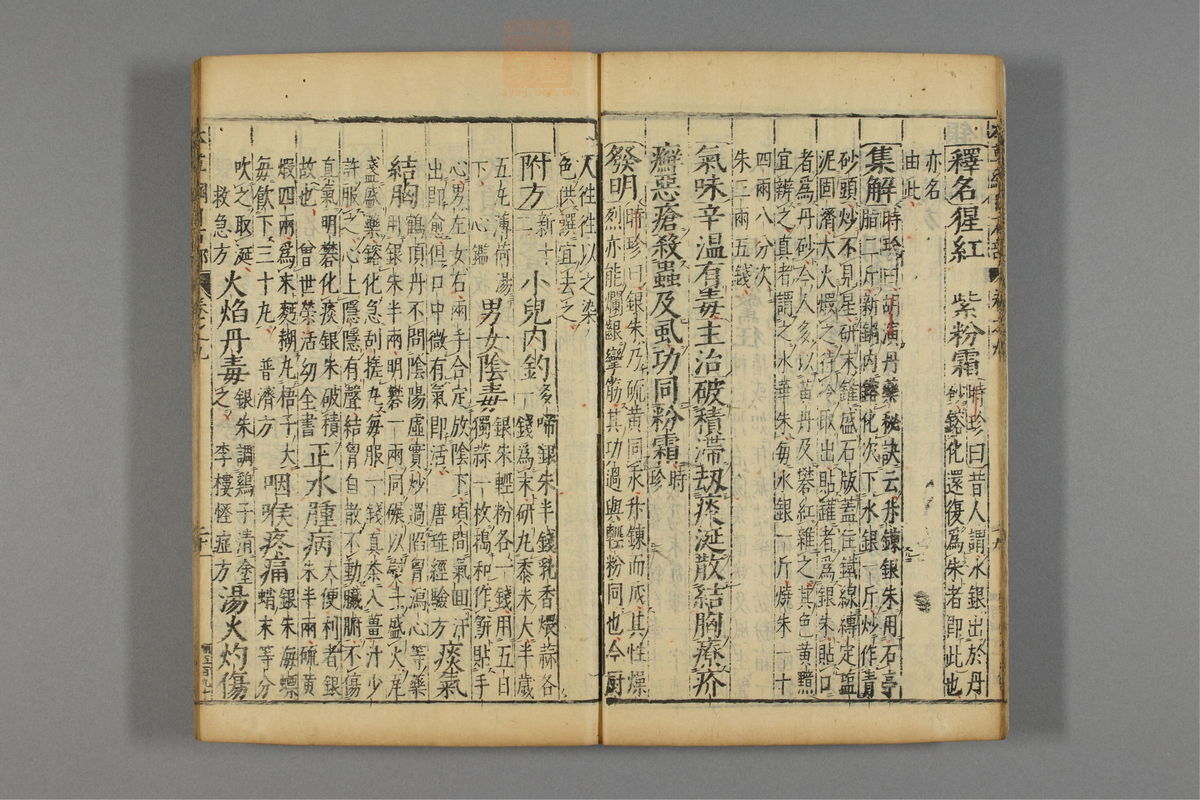 釋名猩紅 紫粉霜
時珍曰昔人謂水銀出於丹
砂鎔化還復爲朱者即此也
亦名
由此
集解
時珍曰胡演丹藥秘訣云升鍊銀朱用石亭
脂二斤新鍋內鎔化次下水銀一斤炒作青
砂頭炒不見星研末罐盛石版蓋住鐵線縛定鹽
泥固濟大火煅之待冷取出貼罐者爲銀朱貼口
者爲丹砂今人多以黃丹及礬紅雜之其色黃黯
宜辨之真者謂之水華朱每水銀一斤燒朱一十
四兩八分次
朱二兩五錢
氣味辛溫有毒主治破積滯刼痰涎散結胸療疥
癬惡瘡殺蟲及虱功同粉霜
時
珍
發明
時珍曰銀朱乃硫黃同汞升鍊而成其性燥
烈亦能爛齦攣筋其功過與輕粉同也今厨
人往往以之染
色供饌宜去之
附方
新十
二
小兒內釣多啼
銀朱半錢乳香煨蒜各
一錢爲末研丸黍米大半歲
五丸薄荷湯
下 心鑑
男女陰毒
銀朱輕粉各一錢用五日
獨蒜一枚搗和作餅貼手
心男左女右兩手合定放陰下頃間氣回汗
出即愈但口中微有氣即活 唐瑶經驗方
痰氣
結胸
鶴頂丹不問陰陽虛實炒過陷胷瀉心等藥
用銀朱半兩明礬一兩同碾以熨斗盛火瓦
盞盛藥鎔化急刮搓丸每服一錢真茶入薑汁少
許服之心上隱隱有聲結胷自散不動臟腑不傷
真氣明礬化痰銀朱破積
故也 曾世榮活幼全書
正水腫病
大便利者銀
朱半兩硫黃
煅四兩爲末麪糊丸梧子大
每飲下三十丸 普濟方
咽喉疼痛
銀朱海螵
蛸末等分
吹之取涎
救急方
火焰丹毒
銀朱調鷄子清塗
之 李樓怪症方
湯火灼傷